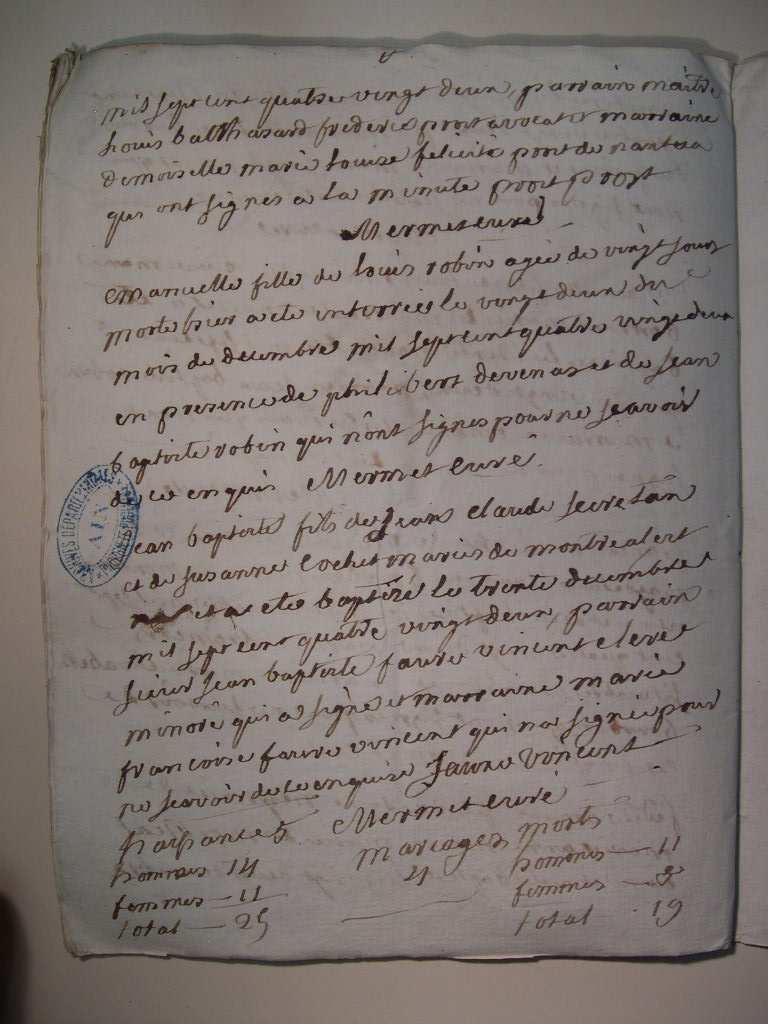 mil sept cent quatre vingt deux, parrain maitre
Louis balthasard frederic prost avocat et marraine
demoiselle marie louise felicité prost de nantua
qui ont signes a la minute prost prost
Mermet curé
emanuelle fille de louis robin agée de vingt jours
morte hier a ete enterrée le vingt deux du
mois de decembre mil sept cent quatre vingt deux
en presence de philibert devenas et de jean
baptiste robin qui n'ont signes pour ne sçavoir
de ce enquis Mermet curé.
jean baptiste fils de jean claude secretan
et de susanne cochet mariés de montreal est
né et a ete baptizé le trente decembre
mil sept cent quatre vingt deux, parrain
sieur jean baptiste faure vincent clerc
minoré qui a signé et marraine marie
francoise faure vincent qui n'a signée pour
ne sçavoir de ce enquise faure vincent
Mermet curé
naissances mariages morts
hommes 14 4 hommes — 11
femmes — 11 femmes — 8
total — 25 total . 19
ARCHIVES DÉPARTEMENTALES
AIN